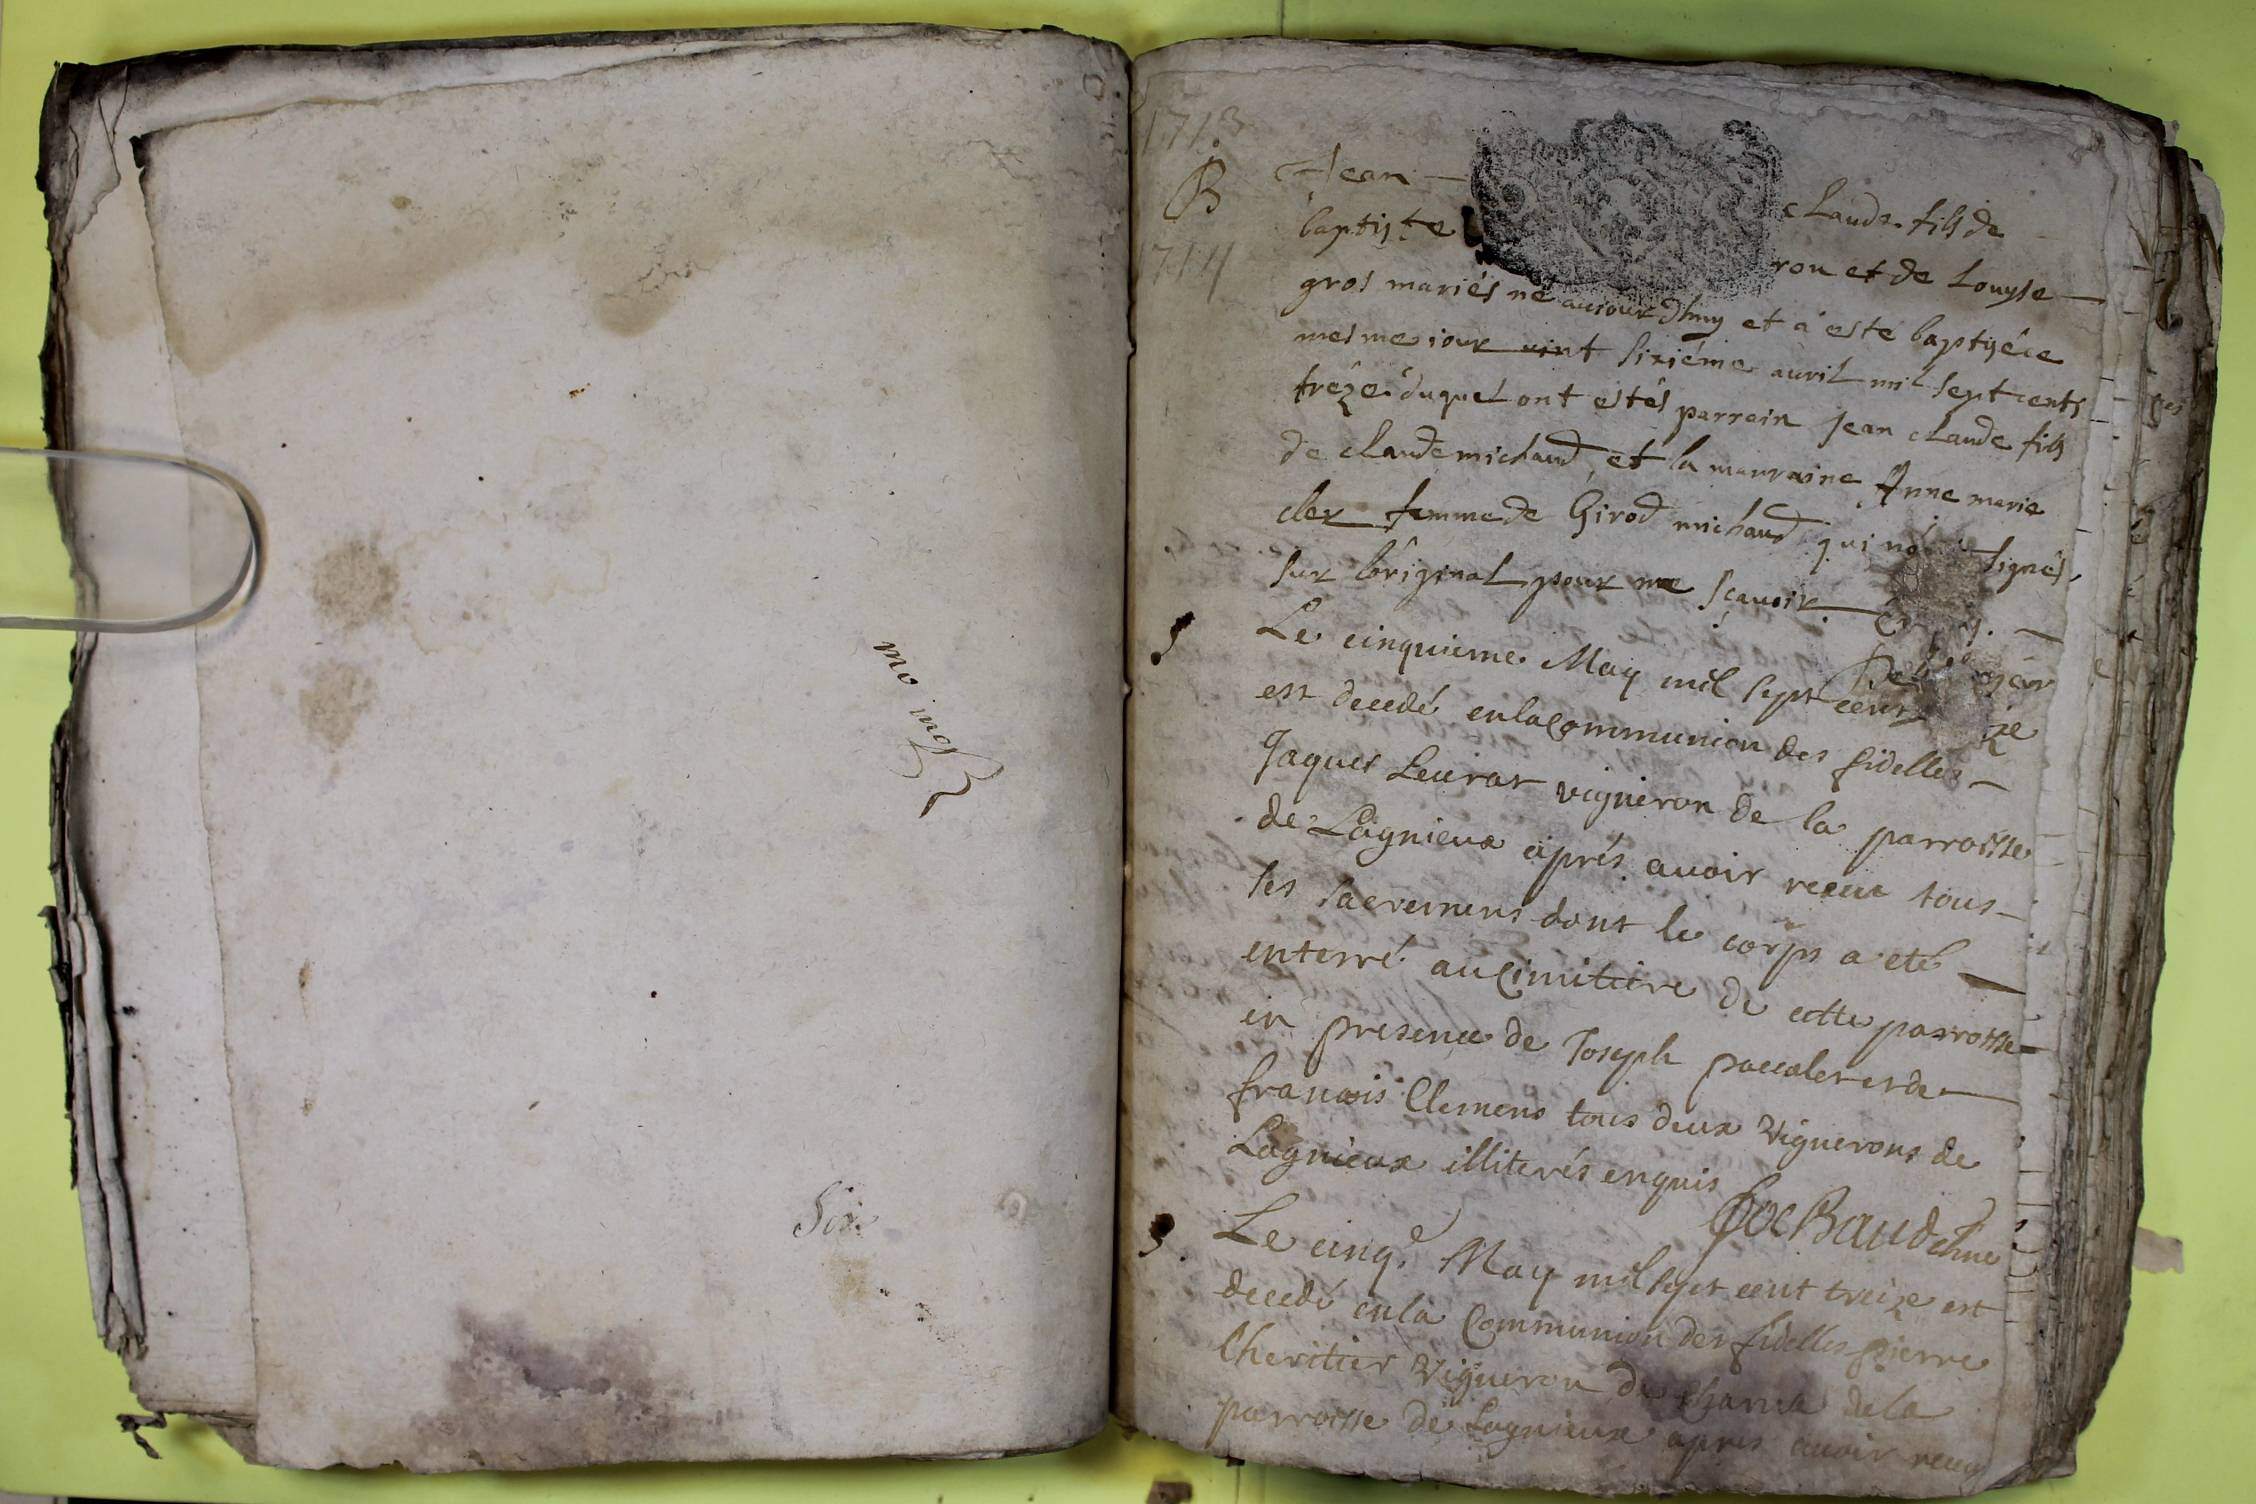 mo ing
1713
B
1714
Jean claude fils de
baptiste ron et de Louyse
gros mariés né aujourdhuy et a esté baptisé ce
mesme iour vint sixiéme auril mil sept cents
tréze duquel ont estés parrain Jean claude fils
de claude michaud et la marraine Anne marie
cler femme de Girod michaud qui signés
sur l'original pour ne sçauoir
Le cinquieme May mil sept cent ze
est decedé en la Communion des fidelles
Jaques Leurat vigneron de la parroisse
de Lagnieux aprés auoir receu tous
les sacremens dont le corps a eté
enterré au Cimitiere de cette parroisse
en presence de Joseph paccalet et de
francois Clemens tous deux Vignerons de
Lagnieux illiterés enquis
Baud chne
Le cinqe May mil sept cent treize est
decedé en la Communion des fidelles pierre
Lheritier Vigneron de de la
parroisse de Lagnieux apres auoir receu